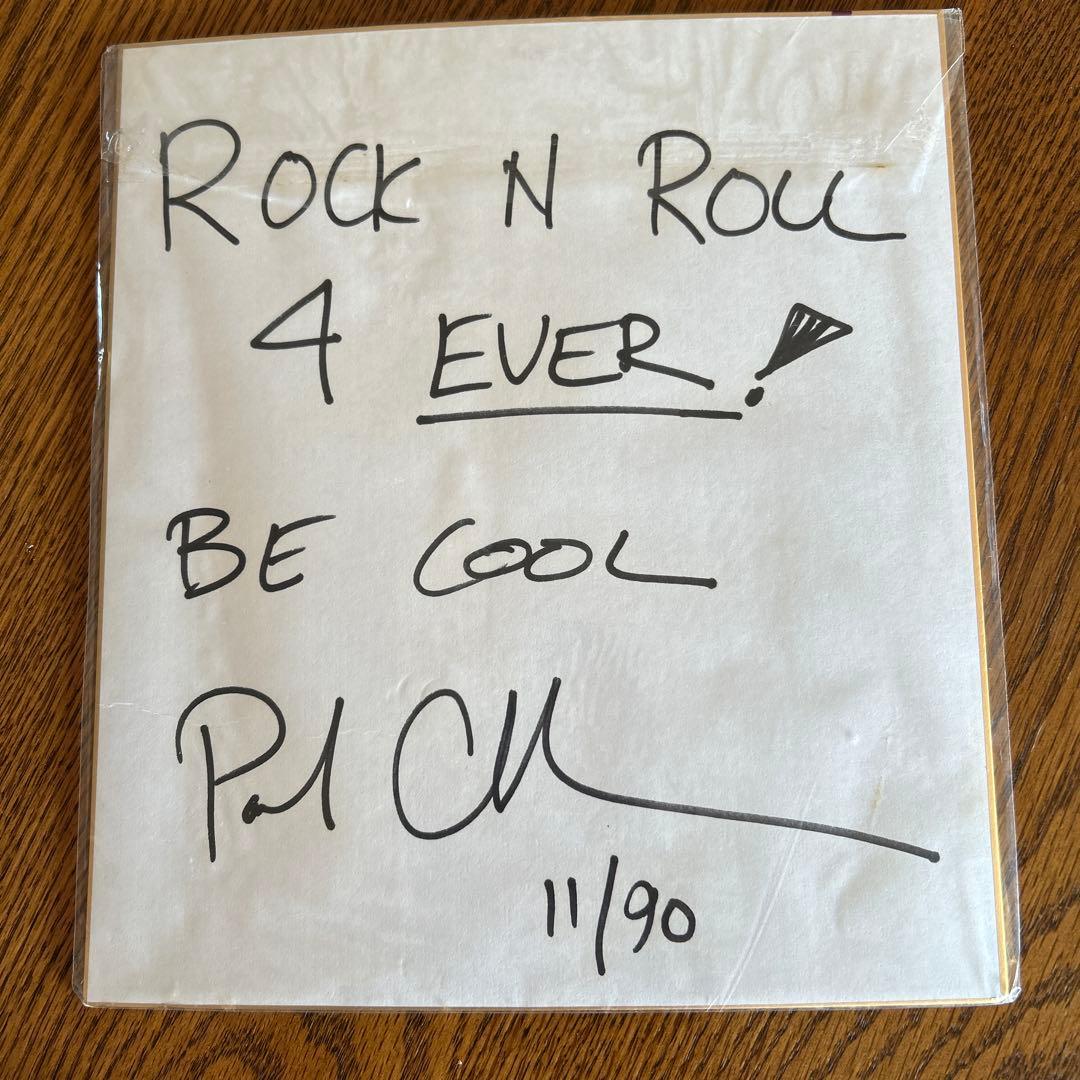 ROCK N ROLL
4 EVER!
BE COOL
11/90